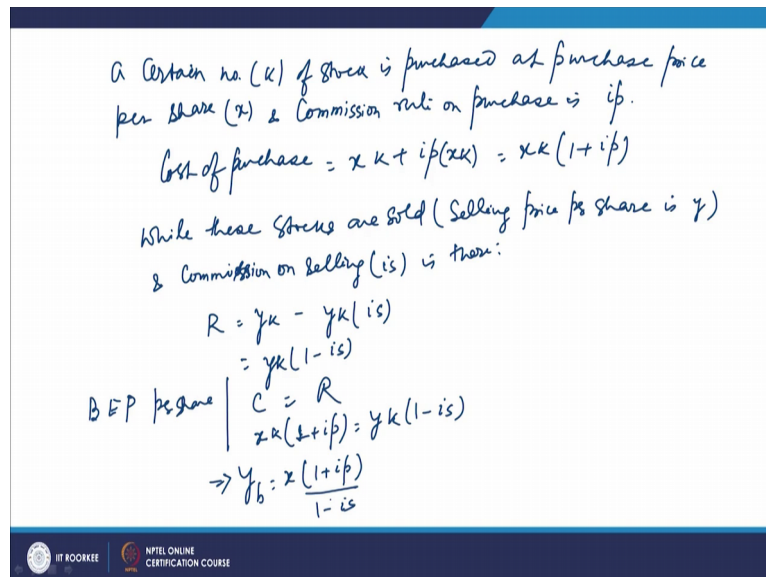 A Certain no. (k) of stock is purchased at purchase price
per share (x) & Commission rate on purchase is ip.
Cost of purchase = xk + ip(xk) = xk(1+ip)
While these stocks are sold (Selling price per share is y)
& Commission on selling (is) is there:
R = yk - yk(is)
= yk(1-is)
BEP per share | C = R
xk(1+ip) = yk(1-is)
⇒ y_b = x(1+ip)/1-is
IIT ROORKEE
NPTEL ONLINE
CERTIFICATION COURSE